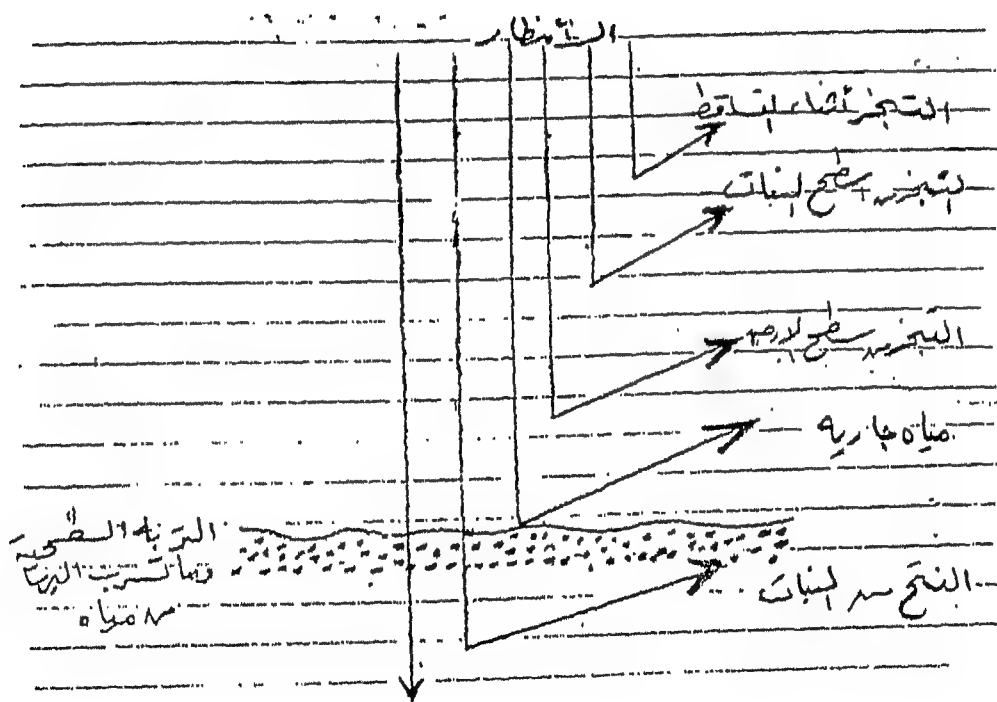 الأمطار
التبخر أثناء التساقط
التبخر من سطح النبات
التبخر من سطح الارض
مياه جاريه
التربه السطحية
وما تسرب اليها
من مياه
النتح من النبات